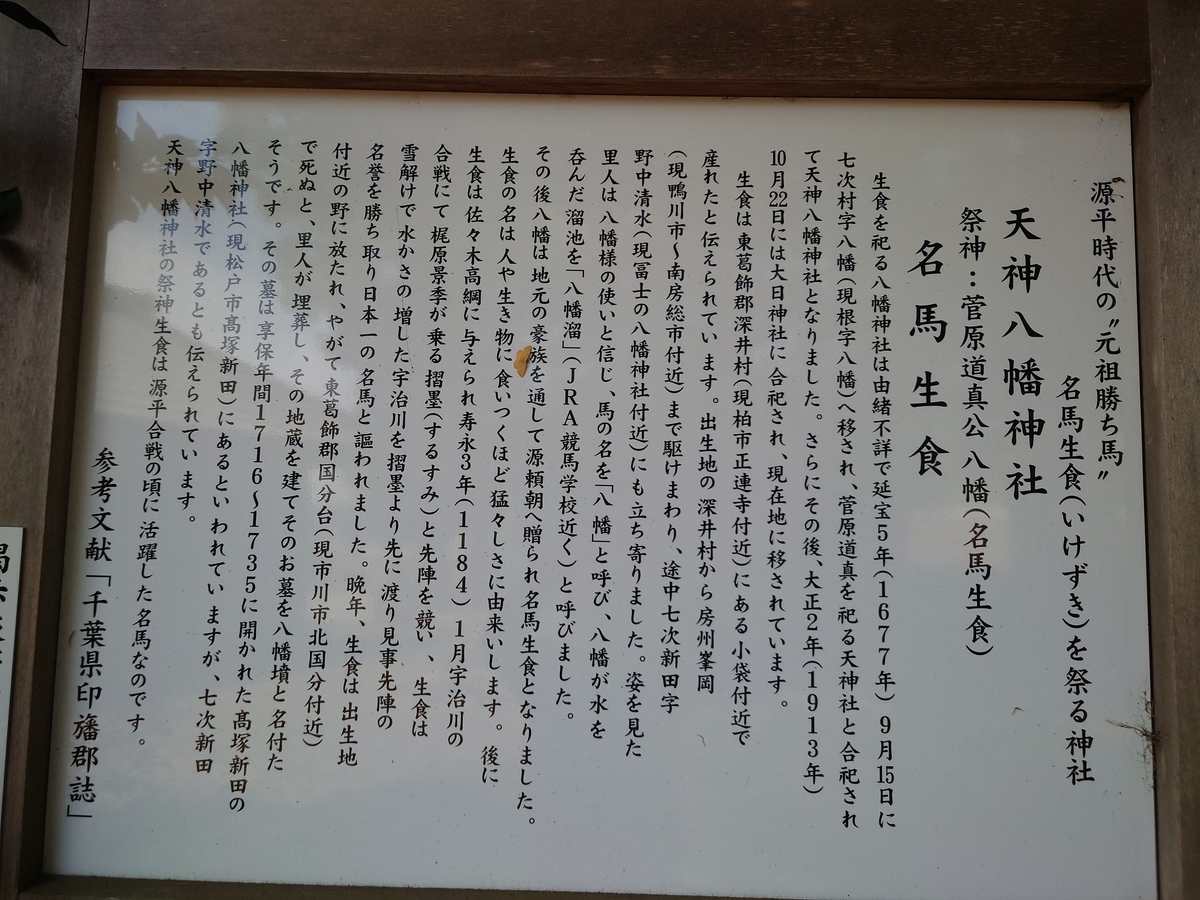 源平時代の〝元祖勝ち馬〟
名馬生食(いけずき)を祭る神社
天神八幡神社
祭神：菅原道真公 八幡(名馬生食)
名馬生食
生食を祀る八幡神社は由緒不詳で延宝5年(1677年) 9月15日に
七次村字八幡(現根字八幡)へ移され、菅原道真を祀る天神社と合祀され
て天神八幡神社となりました。さらにその後、大正2年(1913年)
10月22日には大日神社に合祀され、現在地に移されています。
生食は東葛飾郡深井村(現柏市正連寺付近)にある小袋付近で
産れたと伝えられています。出生地の深井村から房州峯岡
(現鴨川市～南房総市付近)まで駆けまわり、途中七次新田字
野中清水(現冨士の八幡神社付近)にも立ち寄りました。姿を見た
里人は八幡様の使いと信じ、馬の名を「八幡」と呼び、八幡が水を
呑んだ溜池を「八幡溜」(JRA競馬学校近く)と呼びました。
その後八幡は地元の豪族を通して源頼朝へ贈られ名馬生食となりました。
生食の名は人や生き物に食いつくほど猛々しさに由来いします。後に
生食は佐々木高綱に与えられ寿永3年(1184) 1月宇治川の
合戦にて梶原景季が乗る摺墨(するすみ)と先陣を競い、生食は
雪解けで水かさの増した宇治川を摺墨より先に渡り見事先陣の
名誉を勝ち取り日本一の名馬と謳われました。晩年、生食は出生地
付近の野に放たれ、やがて東葛飾郡国分台(現市川市北国分付近)
で死ぬと、里人が埋葬し、その地蔵を建てそのお墓を八幡墳と名付た
そうです。その墓は享保年間1716～1735に開かれた髙塚新田の
八幡神社(現松戸市髙塚新田)にあるといわれていますが、七次新田
字野中清水であるとも伝えられています。
天神八幡神社の祭神生食は源平合戦の頃に活躍した名馬なのです。
参考文献「千葉県印旛郡誌」